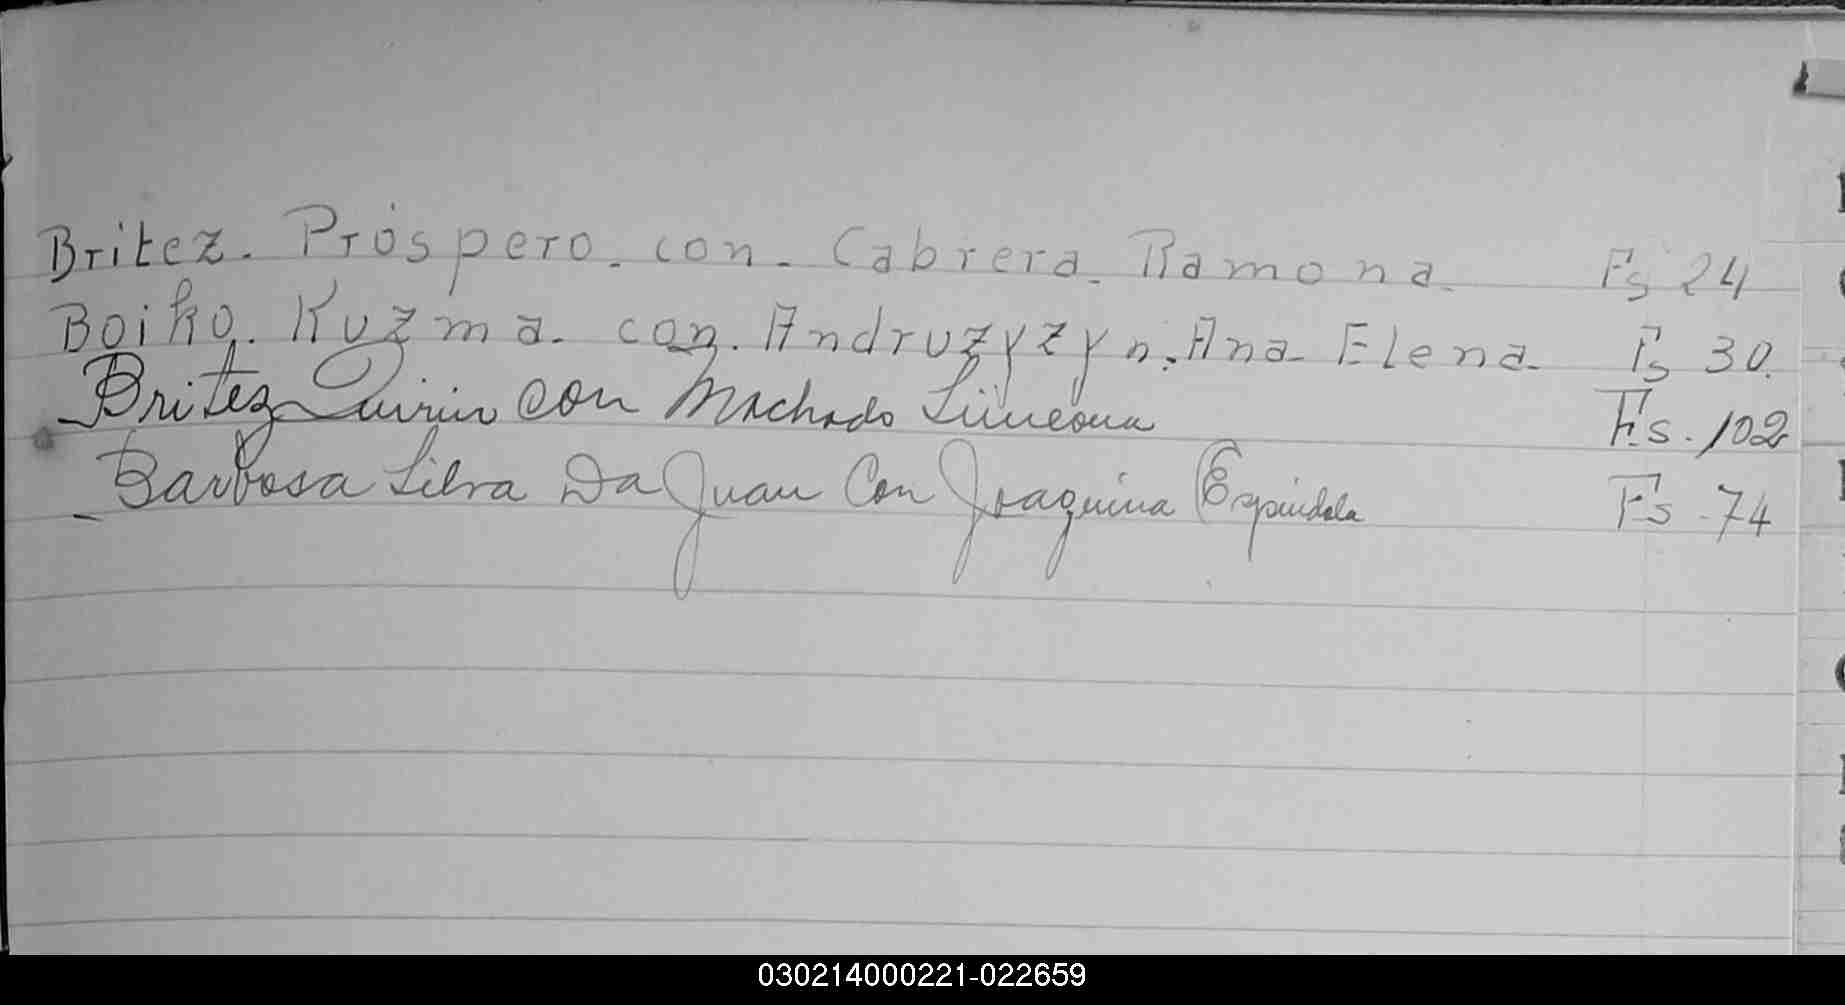 Britez. Próspero. con. Cabrera. Ramona. Fs 24
Boiko. Kuzma. con. Andruzyzyn. Ana Elena. Fs 30.
Britez Quirin con Machado Simeona Fs. 102
Barbosa Silva Da Juan Con Joaquina Espindola Fs. 74
030214000221-022659